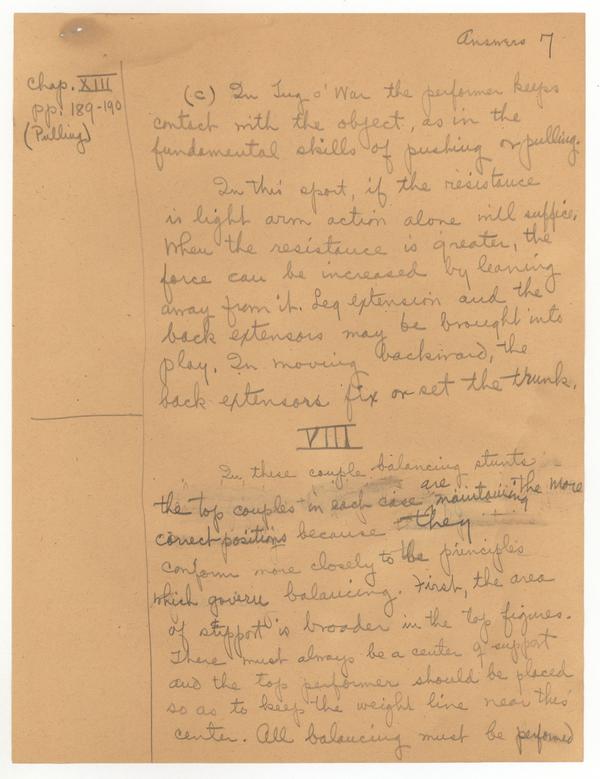 Answers 7
Chap. XIII
pp. 189-190
(Pulling)
(c) In Tug o' War the performer keeps
contact with the object, as in the
fundamental skills of pushing or pulling.
In this sport, if the resistance
is light arm action alone will suffice.
When the resistance is greater, the
force can be increased by leaning
away from it. Leg extension and the
back extensors may be brought into
play. In moving backward, the
back extensors fix or set the trunk.
VIII
In these couple balancing stunts
the top couples in each case are maintaining the more
correct positions because they
conform more closely to the principles
which govern balancing. First, the area
of support is broader in the top figures.
There must always be a center of support
and the top performer should be placed
so as to keep the weight line near this
center. All balancing must be performed